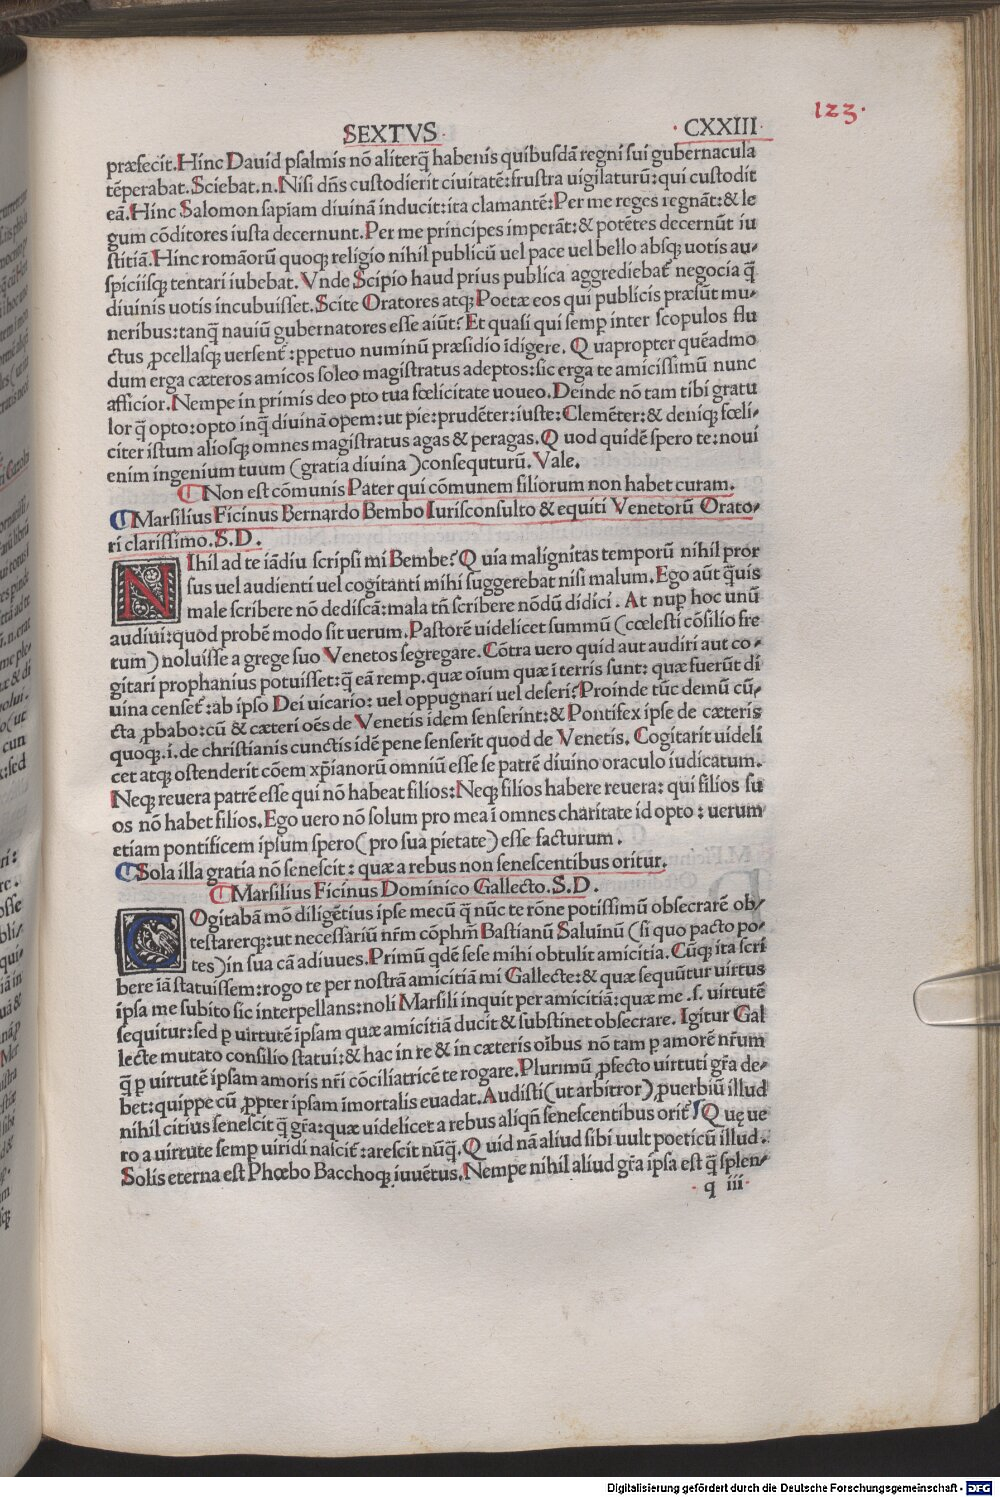 123.
SEXTVS. · CXXIII·
præfecit. Hinc Dauid psalmis nō aliterq̃ habenis quibusdā regni sui gubernacula
tēperabat. Sciebat.n. Nisi dn̄s custodierit ciuitatē: frustra uigilaturū: qui custodit
eā. Hinc Salomon sapiam diuinā inducit: ita clamantē: Per me reges regnāt: & le
gum cōditores iusta decernunt. Per me principes imperāt: & potētes decernūt iu
stitiā. Hinc romāorū quoqꝫ religio nihil publicū uel pace uel bello absqꝫ uotis au-
spiciisqꝫ tentari iubebat. Vnde Scipio haud prius publica aggrediebat̃ negocia q̃
diuinis uotis incubuisset. Scite Oratores atqꝫ Poetæ eos qui publicis præsūt mu-
neribus: tanq̃ nauiū gubernatores esse aiūt? Et quasi qui semp̱ inter scopulos flu
ctus ꝓcellasqꝫ uersent̃: p̱petuo numinū præsidio īdigere. Quapropter quēadmo
dum erga cæteros amicos soleo magistratus adeptos: sic erga te amicissimū nunc
afficior. Nempe in primis deo pto tua fœlicitate uoueo. Deinde nō tam tibi gratu
lor q̃ opto: opto inq̃ diuinā opem: ut pie: prudēter: iuste: Clemēter: & deniqꝫ fœli-
citer istum aliosqꝫ omnes magistratus agas & peragas. Quod quidē spero te: noui
enim ingenium tuum (gratia diuina) consequturū. Vale.
⸿ Non est cōmunis Pater qui cōmunem filiorum non habet curam.
⸿ Marsilius Ficinus Bernardo Bembo Iurisconsulto & equiti Venetorū Orato-
ri clarissimo. S.D.
NIhil ad te iādiu scripsi mi Bembe? Quia malignitas temporū nihil pror
sus uel audienti uel cogitanti mihi suggerebat nisi malum. Ego aūt q̃uis
male scribere nō dediscā: mala tn̄ scribere nōdū didici. At nup̱ hoc unū
audiui: quod probē modo sit uerum. Pastorē uidelicet summū (cœlesti cōsilio fre
tum) noluisse a grege suo Venetos segregare. Cōtra uero quid aut audiri aut co-
gitari prophanius potuisset: q̃ eā remp. quæ oīum quæ ī terris sunt: quæ fuerūt di
uina censet̃: ab ipso Dei uicario: uel oppugnari uel deseri? Proinde tūc demū cū-
cta ꝓbabo: cū & cæteri oēs de Venetis idem senserint: & Pontifex ipse de cæteris
quoqꝫ .i. de christianis cunctis idē pene senserit quod de Venetis. Cogitarit uideli
cet atqꝫ ostenderit cōem xp̄ianorū omniū esse se patrē diuino oraculo iudicatum.
Neqꝫ reuera patrē esse qui nō habeat filios: Neqꝫ filios habere reuera: qui filios su
os nō habet filios. Ego uero nō solum pro mea ī omnes charitate id opto: uerum
etiam pontificem ipsum spero (pro sua pietate) esse facturum.
⸿ Sola illa gratia nō senescit: quæ a rebus non senescentibus oritur.
⸿ Marsilius Ficinus Dominico Gallecto. S.D.
COgitabā mō diligētius ipse mecū q̃ nūc te rōne potissimū obsecrarē ob-
testarerqꝫ: ut necessariū nr̄m cōphm̄ Bastianū Saluinū (si quo pacto po-
tes) in sua cā adiuues. Primū qdē sese mihi obtulit amicitia. Cūqꝫ ita scri
bere iā statuissem: rogo te per nostrā amicitiā mi Gallecte: & quæ sequūtur uirtus
ipsa me subito sic interpellans: noli Marsili inquit per amicitiā: quæ me .s. uirtutē
sequitur: sed p̱ uirtutē ipsam quæ amicitiā ducit & substinet obsecrare. Igitur Gal
lecte mutato consilio statui: & hac in re & in cæteris oībus nō tam p̱ amorē nr̄um
q̃ p̱ uirtutē ipsam amoris nr̄i cōciliatricē te rogare. Plurimū ꝓfecto uirtuti gr̄a de-
bet: quippe cū ꝓpter ipsam imortalis euadat. Audisti (ut arbitror) ꝓuerbiū illud
nihil citius senescit q̃ gr̄a: quæ uidelicet a rebus aliqn̄ senescentibus orit̃? Quę ue
ro a uirtute semp̱ uiridi nascit̃: arescit nūq̃. Quid nā aliud sibi uult poeticū illud.
Solis eterna est Phœbo Bacchoqꝫ iuuētus. Nempe nihil aliud gr̄a ipsa est q̃ splen-
· q iii ·
Digitalisierung gefördert durch die Deutsche Forschungsgemeinschaft - DFG